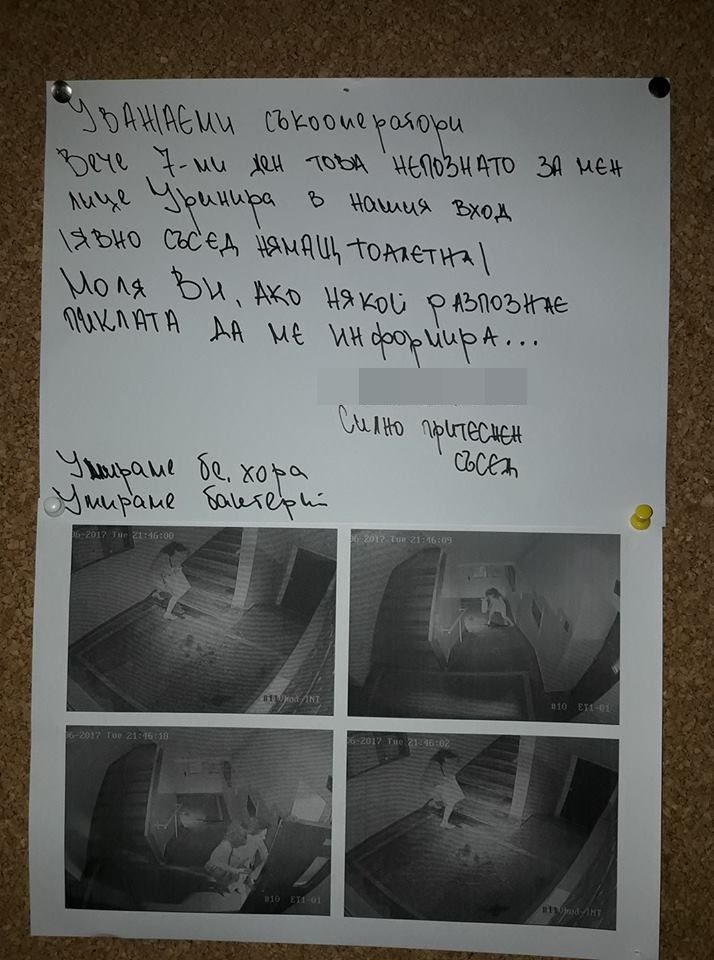 УВАЖАЕМИ съкооператори
Вече 7-ми ден това непознато за мен
лице Уринира в нашия вход
/явно съсед нямащ тоалетна/
Моля Ви, ако някой разпознае
пиклата да ме информира...
Силно притеснен
съсед
Умираме бе, хора
Умираме бактерии
06-2017 Tue 21:46:00
06-2017 Tue 21:46:09
#10 ET1-01
06-2017 Tue 21:46:18
06-2017 Tue 21:46:02
#10 ET1-01